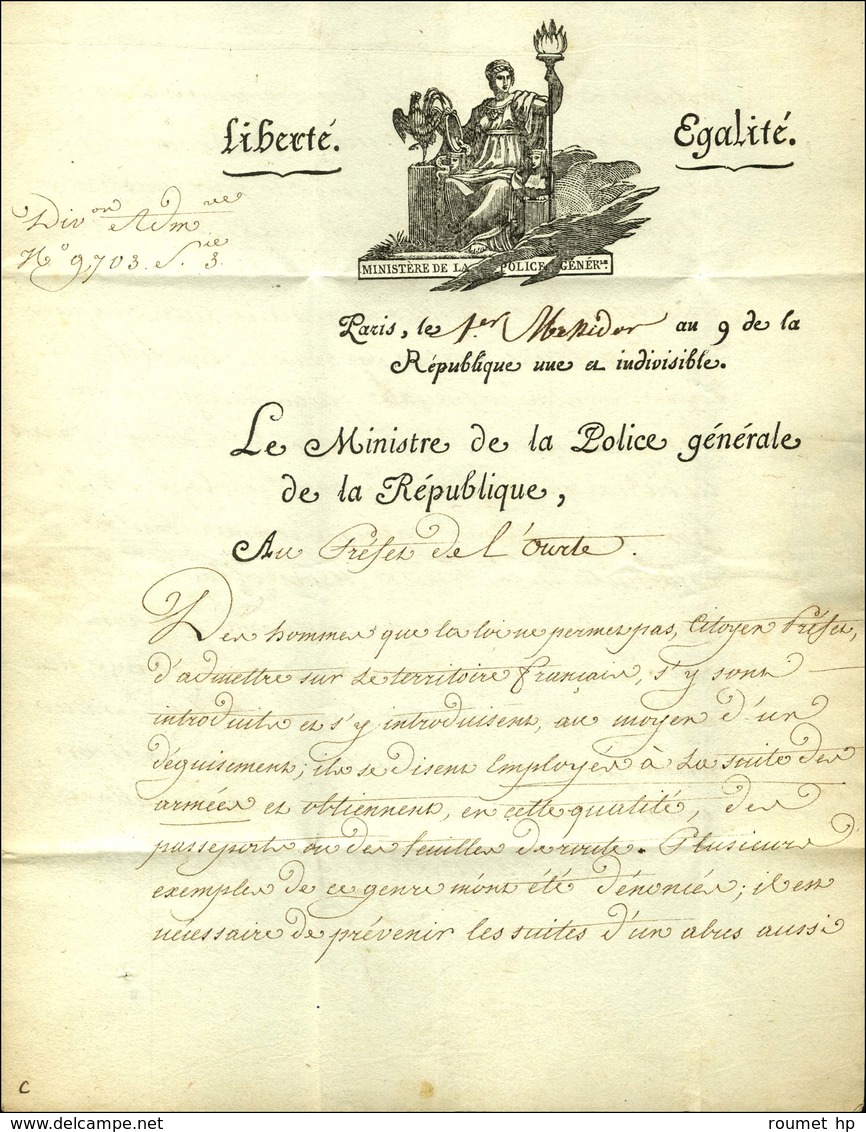 Liberté. Egalité.
Divon Admve
No 9,703. Sie 3.
MINISTÈRE DE LA POLICE GÉNÉRLE.
Paris, le 1.er Messidor an 9 de la
République une et indivisible.
Le Ministre de la Police générale
de la République,
Au Préfet de l'Ourte.
Des hommes que la loi ne permet pas, Citoyen Préfet,
d'admettre sur le territoire français, s'y sont
introduits et s'y introduisent, au moyen d'un
déguisement; ils se disent Employés à la suite des
armées et obtiennent, en cette qualité, des
passeports ou des feuilles de route. Plusieurs
exemples de ce genre m'ont été dénoncés; il est
nécessaire de prévenir les suites d'un abus aussi
C
roumet hp